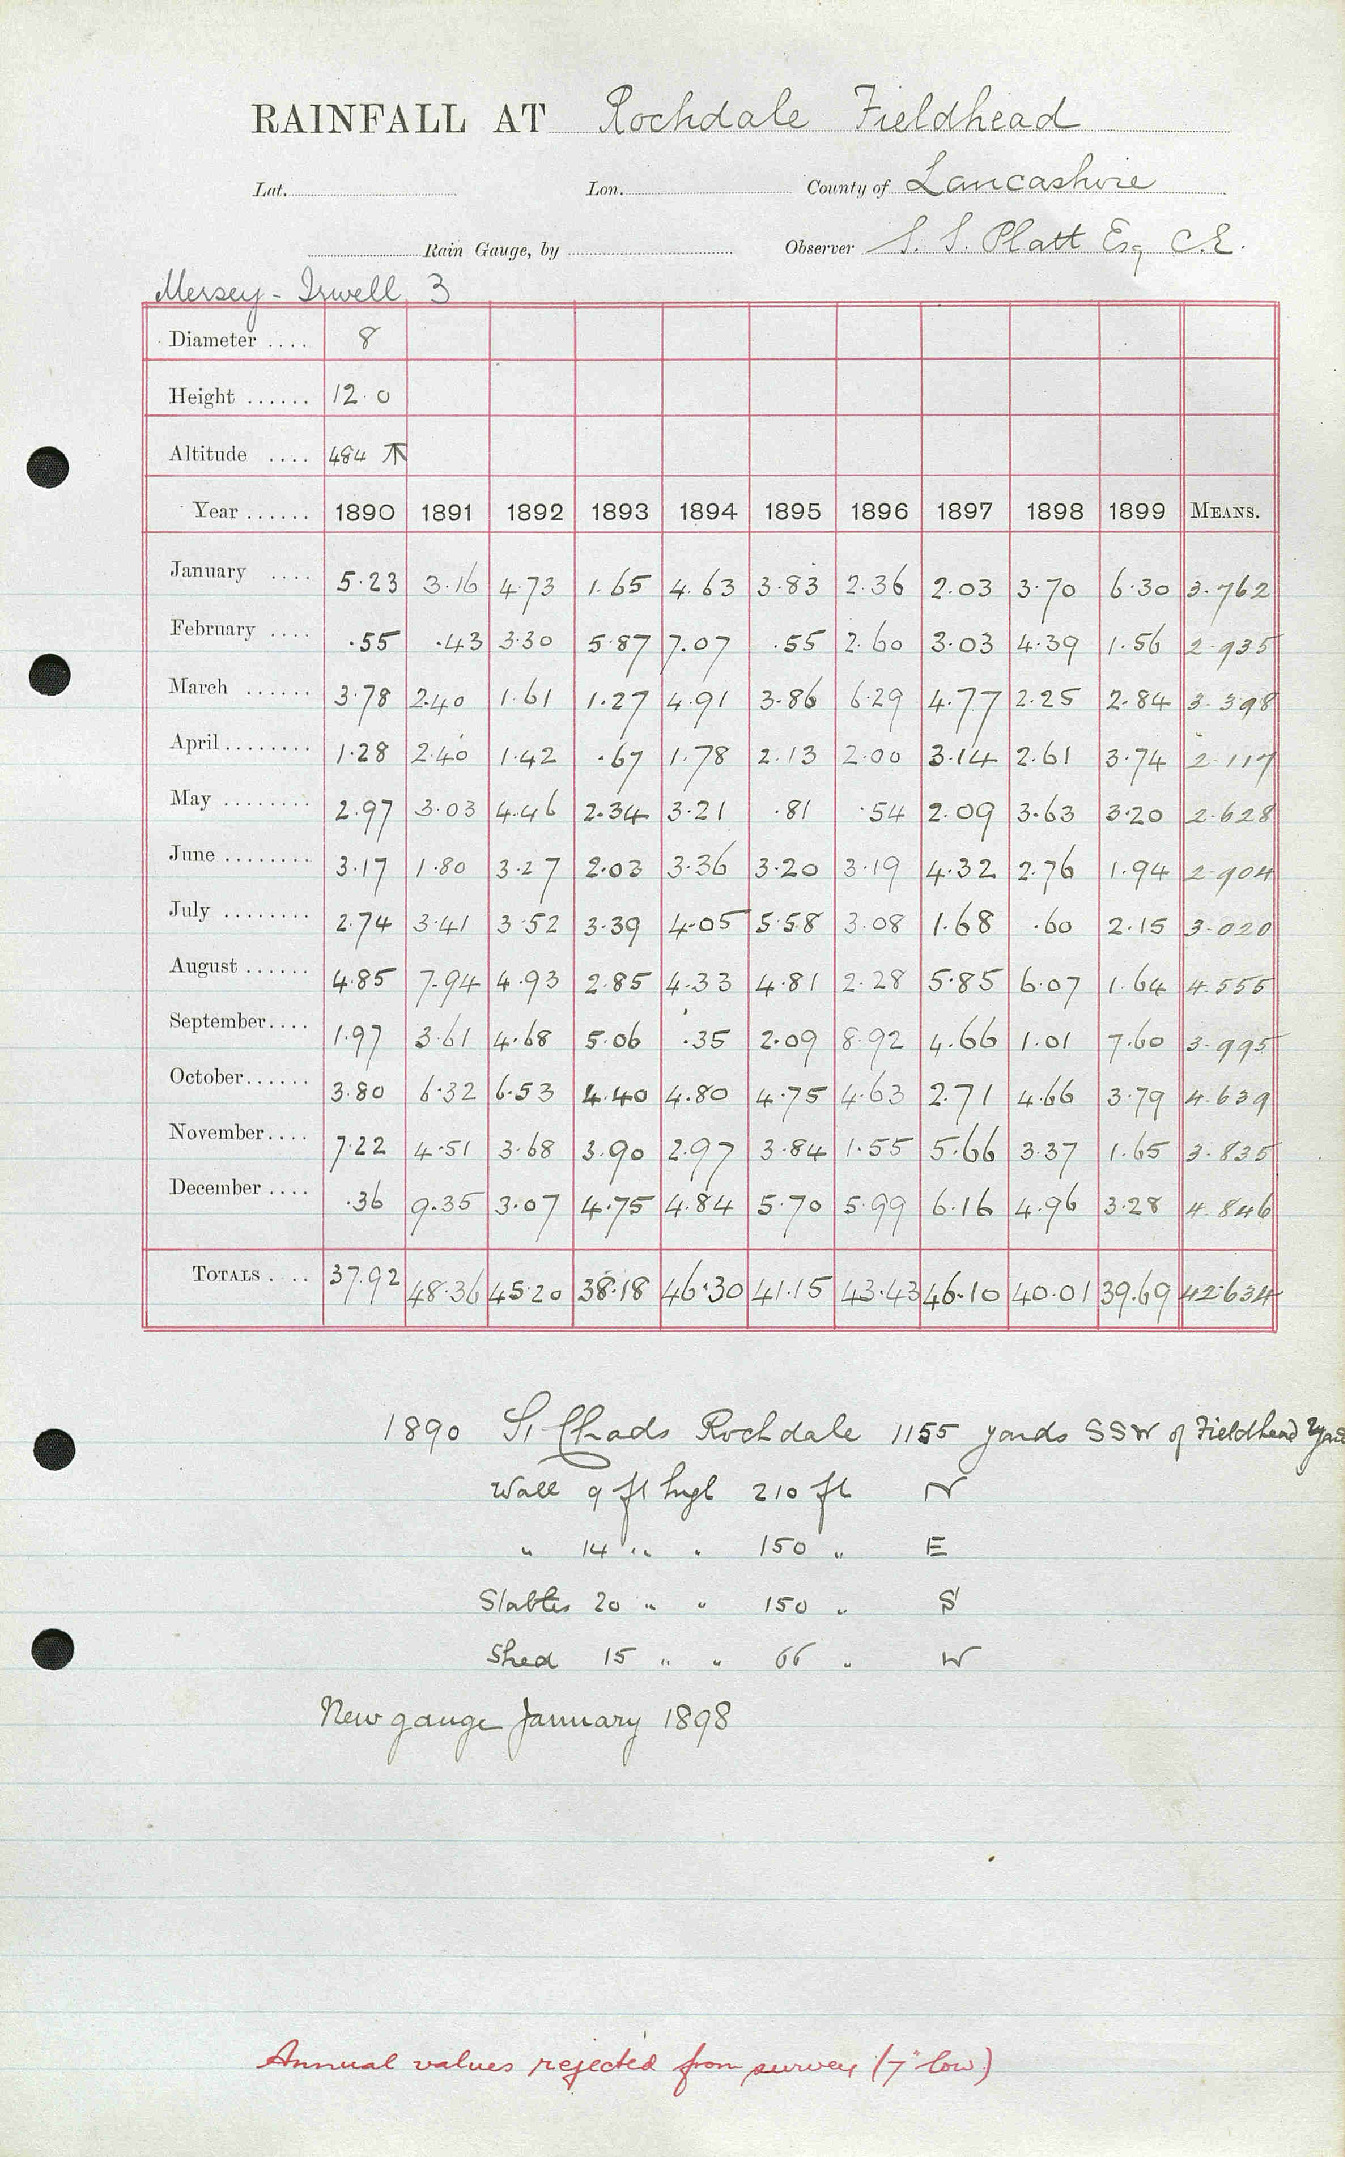 RAINFALL AT Rochdale Fieldhead
Lat. Lon. County of Lancashire
Rain Gauge, by Observer S. S. Platt Esq C.E.
Mersey - Irwell 3
Diameter .... 8
Height ...... 12.0
Altitude .... 484 ↑
Year ...... 1890 1891 1892 1893 1894 1895 1896 1897 1898 1899 MEANS.
January .... 5.23 3.16 4.73 1.65 4.63 3.83 2.36 2.03 3.70 6.30 3.762
February .... .55 .43 3.30 5.87 7.07 .55 2.60 3.03 4.39 1.56 2.935
March ...... 3.78 2.40 1.61 1.27 4.91 3.86 6.29 4.77 2.25 2.84 3.398
April ........ 1.28 2.40 1.42 .67 1.78 2.13 2.00 3.14 2.61 3.74 2.117
May ........ 2.97 3.03 4.46 2.34 3.21 .81 .54 2.09 3.63 3.20 2.628
June ........ 3.17 1.80 3.27 2.03 3.36 3.20 3.19 4.32 2.76 1.94 2.904
July ........ 2.74 3.41 3.52 3.39 4.05 5.58 3.08 1.68 .60 2.15 3.020
August ...... 4.85 7.94 4.93 2.85 4.33 4.81 2.28 5.85 6.07 1.64 4.555
September.... 1.97 3.61 4.68 5.06 .35 2.09 8.92 4.66 1.01 7.60 3.995
October...... 3.80 6.32 6.53 4.40 4.80 4.75 4.63 2.71 4.66 3.79 4.639
November.... 7.22 4.51 3.68 3.90 2.97 3.84 1.55 5.66 3.37 1.65 3.835
December .... .36 9.35 3.07 4.75 4.84 5.70 5.99 6.16 4.96 3.28 4.846
TOTALS .... 37.92 48.36 45.20 38.18 46.30 41.15 43.43 46.10 40.01 39.69 42.634
1890 St Chads Rochdale 1155 yards SSW of Fieldhead
Wall 9 ft high 210 ft N
" 14 " " 150 " E
Stables 20 " " 150 " S
Shed 15 " " 66 " W
New gauge January 1898
Annual values rejected from survey (7" low)